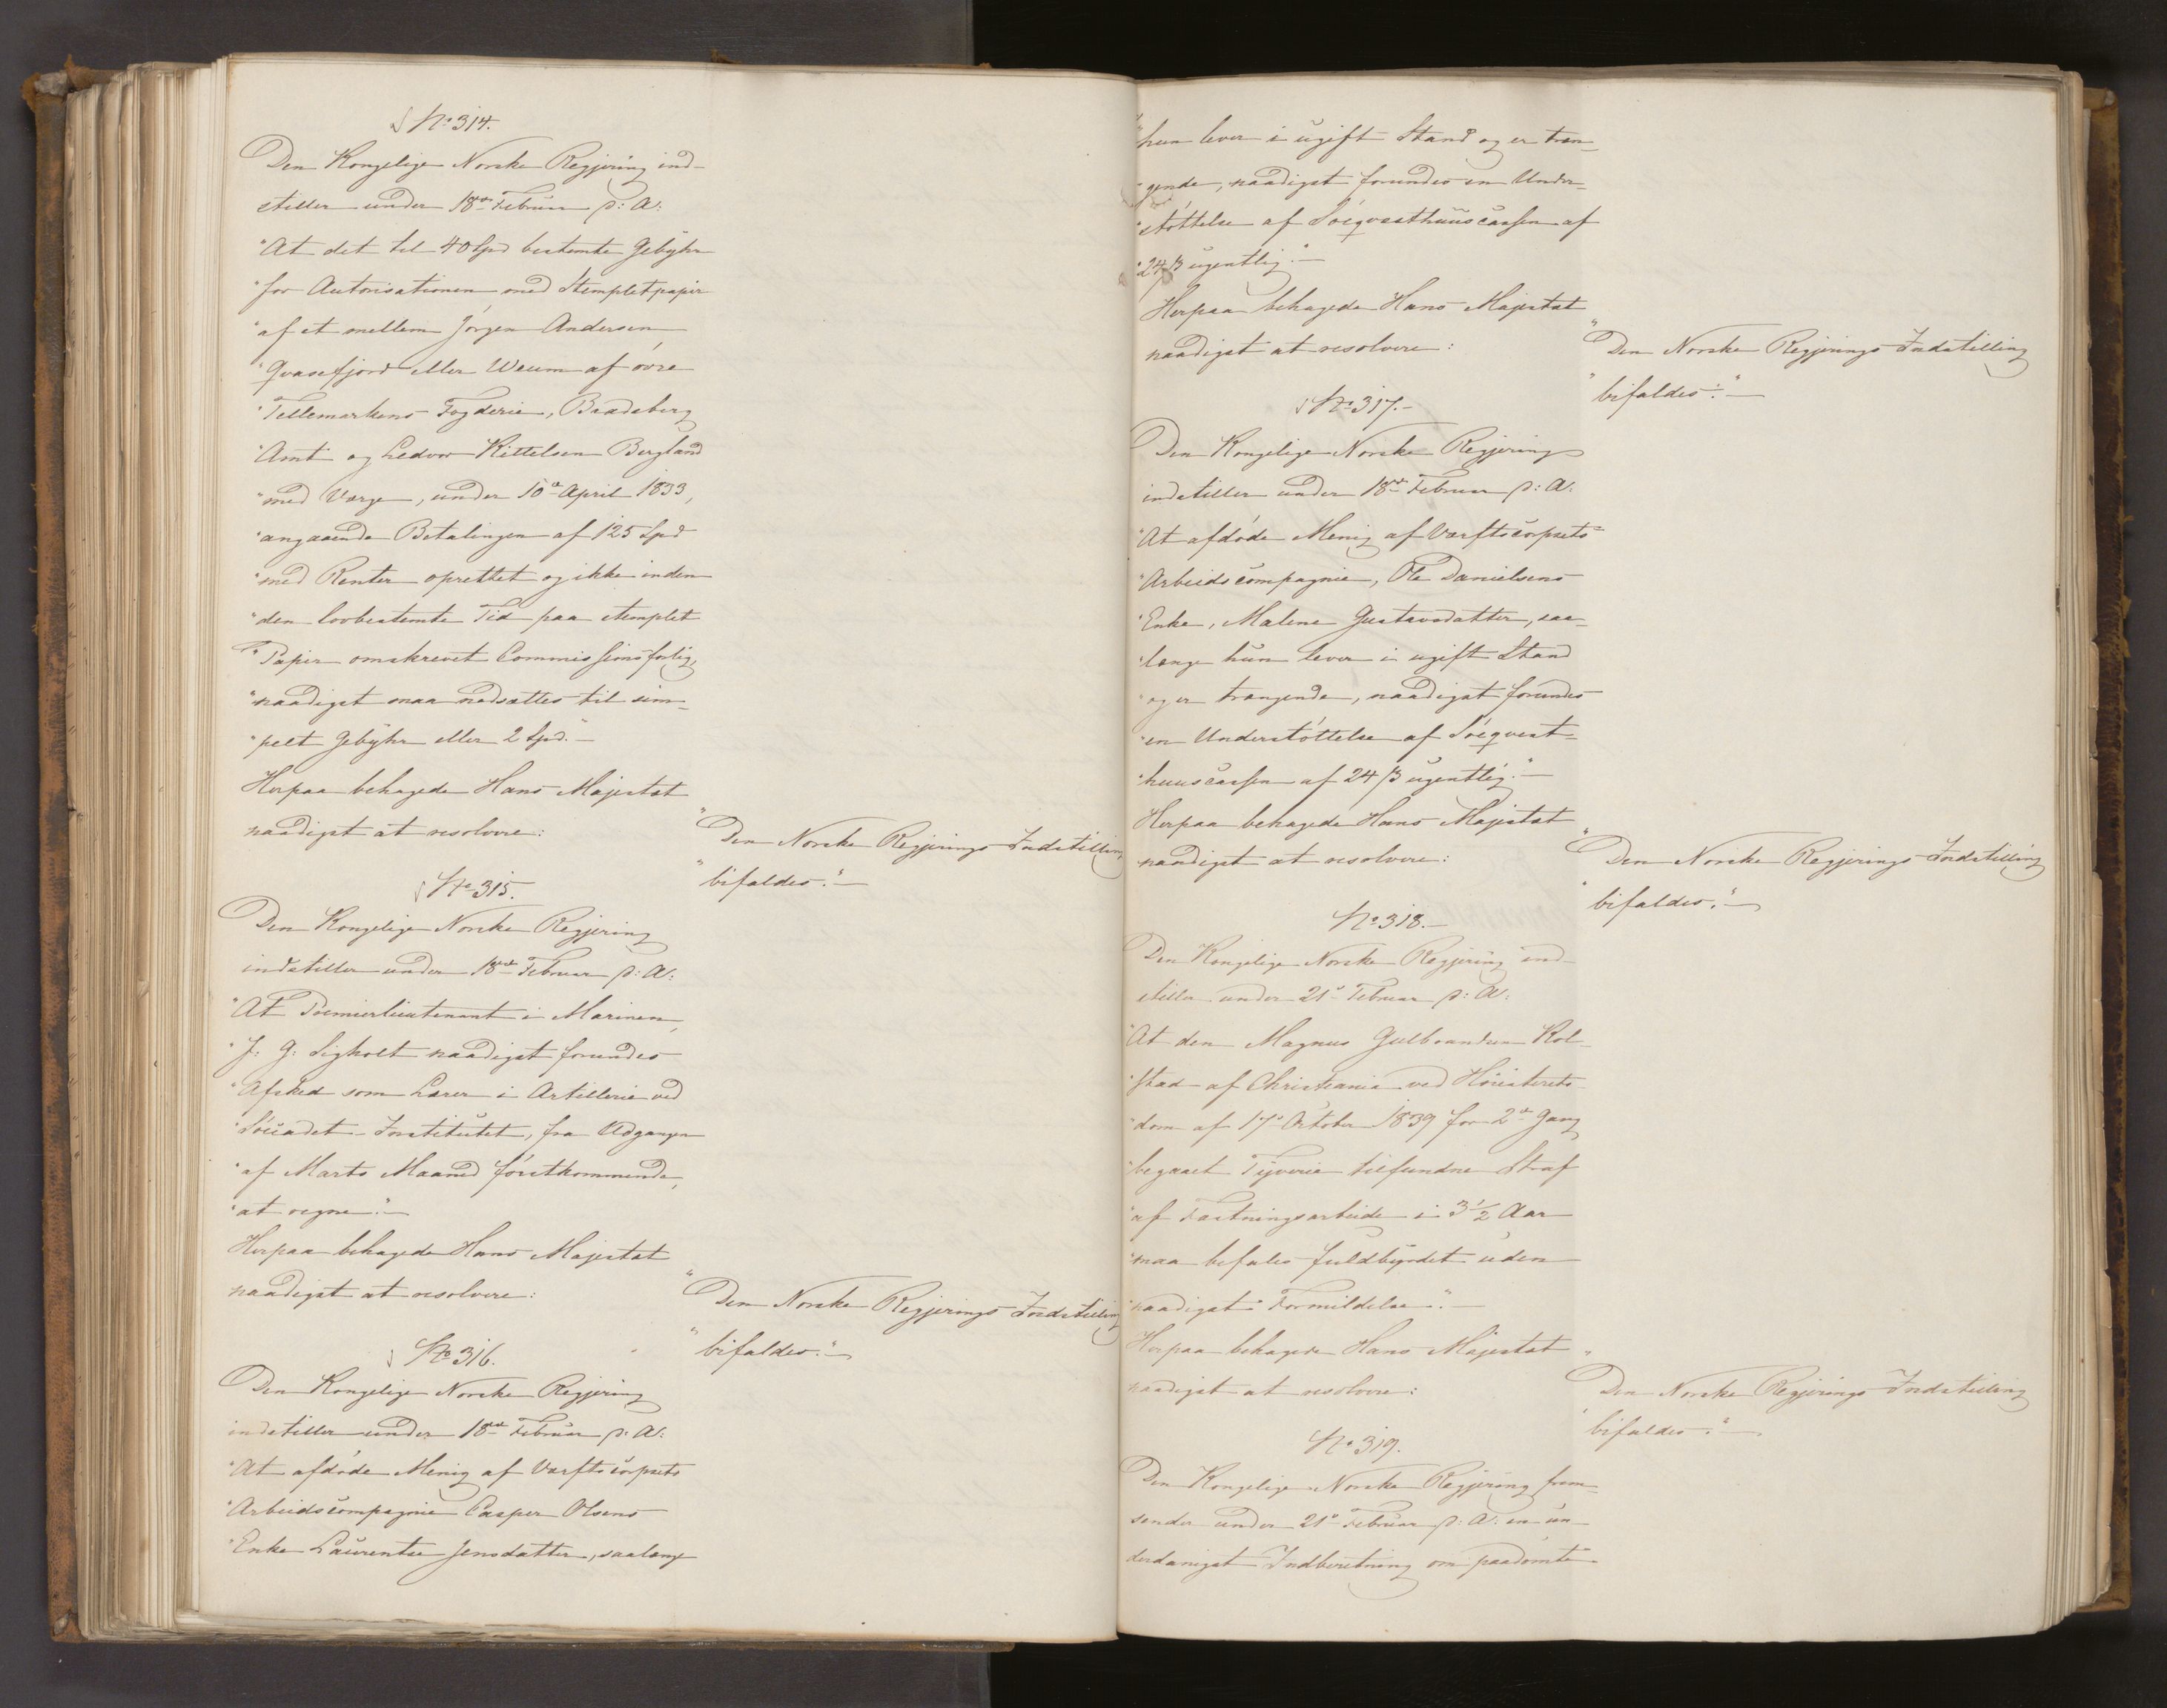 No 314.
Den Kongelige Norske Regjering ind-
stiller under 18de Februar d: A:
"At det til 40 Spd bestemte Gebyhr
"for Autorisationen med Stempletpapir
"af et mellem Jörgen Andersen
"Qvasefjord eller Weum af övre
"Tellemarkens Fogderie, Bradsberg
"Amt og Ledvor Kittelsen Bergland
"med Værge, under 10de April 1833,
"angaaende Betalingen af 125 Spd
"med Renter oprettet og ikke inden
"den lovbestemte Tid paa stemplet
"Papir omskrevet Commissionsforlig,
"naadigst maa nedsættes til sim-
"pelt Gebyhr eller 2 Spd."-
Herpaa behagede Hans Majestæt
naadigst at resolvere:
"Den Norske Regjerings Indstilling
"bifaldes."-
No 315.
Den Kongelige Norske Regjering
indstiller under 18de Februar d: A:
"At Premierlieutenant i Marinen,
"J: G: Sigholt naadigst forundes
"Afsked som Lærer i Artillerie ved
"Söecadet-Institutet, fra Udgangen
"af Marts Maaned förstkommende,
"at regne."-
Herpaa behagede Hans Majestæt
naadigst at resolvere:
"Den Norske Regjerings Indstilling
"bifaldes."-
No 316.
Den Kongelige Norske Regjering
indstiller under 18de Februar d: A:
"At afdöde Menig af Værftscorpsets
"Arbeidscompagnie Casper Olsens
"Enke Laurentse Jensdatter, saalænge
"hun lever i ugift Stand og er træn-
"gende, naadigst forundes en Under-
"stöttelse af Söeqvæsthuuscassen af
"24 ß ugentlig."-
Herpaa behagede Hans Majestæt
naadigst at resolvere:
"Den Norske Regjerings Indstilling
"bifaldes."-
No 317.-
Den Kongelige Norske Regjering
indstiller under 18de Februar d: A:
"At afdöde Menig af Værftscorpsets
"Arbeidscompagnie, Ole Danielsens
"Enke, Malene Gustavsdatter, saa-
"længe hun lever i ugift Stand
"og er trængende, naadigst forundes
"en Understöttelse af Söeqvæst-
"huuscassen af 24 ß ugentlig."-
Herpaa behagede Hans Majestæt
naadigst at resolvere:
"Den Norske Regjerings Indstilling
"bifaldes."-
No 318.-
Den Kongelige Norske Regjering ind-
stiller under 21de Februar d: A:
"At den Magnus Gulbrandsen Rol-
"stad af Christiania ved Höiesterets-
"dom af 17de October 1839 for 2den Gang
"begaaet Tyverie tilfundne Straf
"af Fæstningsarbeide i 3½ Aar
"maa befales fuldbyrdet uden
"naadigst Formildelse."-
Herpaa behagede Hans Majestæt
naadigst at resolvere:
"Den Norske Regjerings Indstilling
"bifaldes."-
No 319.
Den Kongelige Norske Regjering frem-
sender under 21de Februar d: A: en un-
derdanigst Indberetning om paadömte